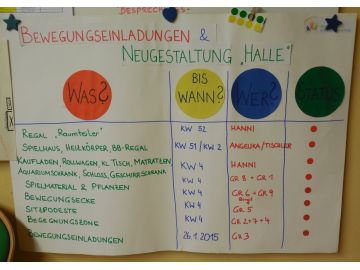 BESPRECHUNGS-
BEWEGUNGSEINLADUNGEN &
NEUGESTALTUNG "HALLE"
WAS? BIS WANN? WER? STATUS
REGAL "Raumteiler" KW 52 HANNI
SPIELHAUS, HEIZKÖRPER, BB-REGAL KW 51/KW 2 ANGELIKA/TISCHLER
KAUFLADEN, ROLLWAGEN KL. TISCH, MATRATZEN KW 4 HANNI
AQUARIUMSCHRANK, SCHLOSS, GESCHIRRSCHRANK KW 4 GR 8 + GR 1
SPIELMATERIAL & PFLANZEN KW 4 GR 6 + GR 9
BEWEGUNGSECKE KW 4 Birgit
SITZPODESTE KW 4 GR 5
BEGEGNUNGSZONE KW 4 GR 2+7+4
BEWEGUNGSEINLADUNGEN 26.1.2015 GR 3